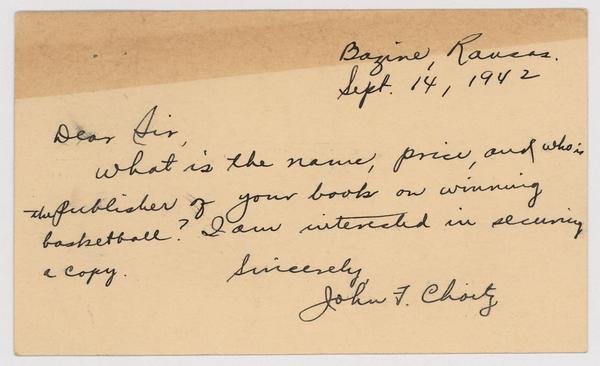 Bazine, Kansas.
Sept. 14, 1942
Dear Sir,
What is the name, price, and who is
the publisher of your book on winning
basketball? I am interested in securing
a copy.
Sincerely,
John F. Choitz